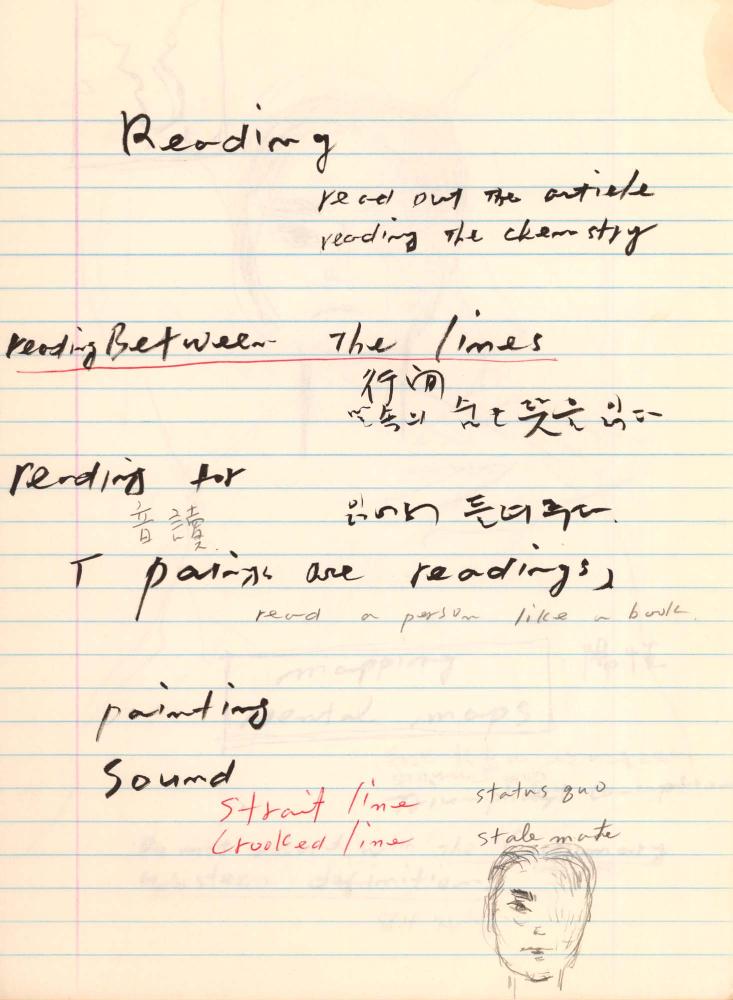 Reading
read out the article
reading the chemistry
reading Between the lines
行间
말속의 숨은 뜻을 읽다
reading for
音讀
읽어서 들려주다.
「 paints are readings 」
read a person like a book.
painting
Sound
Strait line
Crooked line
status quo
stale mate